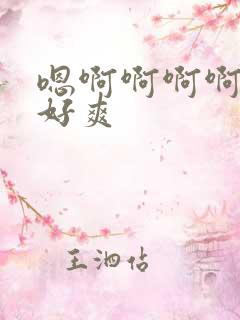 嗯啊啊啊啊
好爽
王泗佔